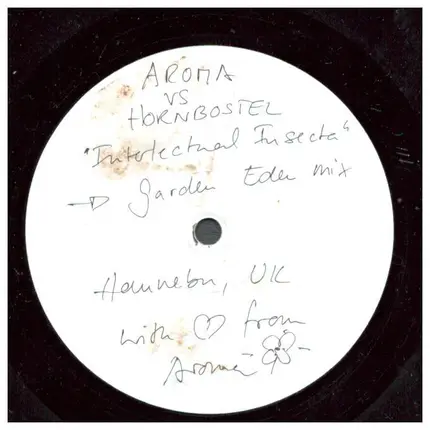 AROMA
VS
HORNBOSTEL
"Intertectual Insecta"
→ garden Eden mix
UK
with ♡ from
Aroma